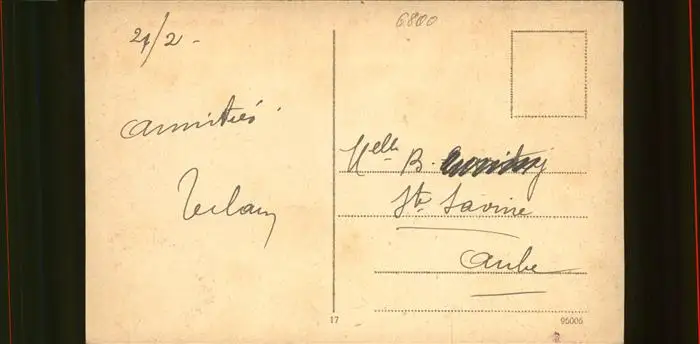 6800
21/2 -
Amitiés.
Melle B.
Ste Savine
Aube
17
95005